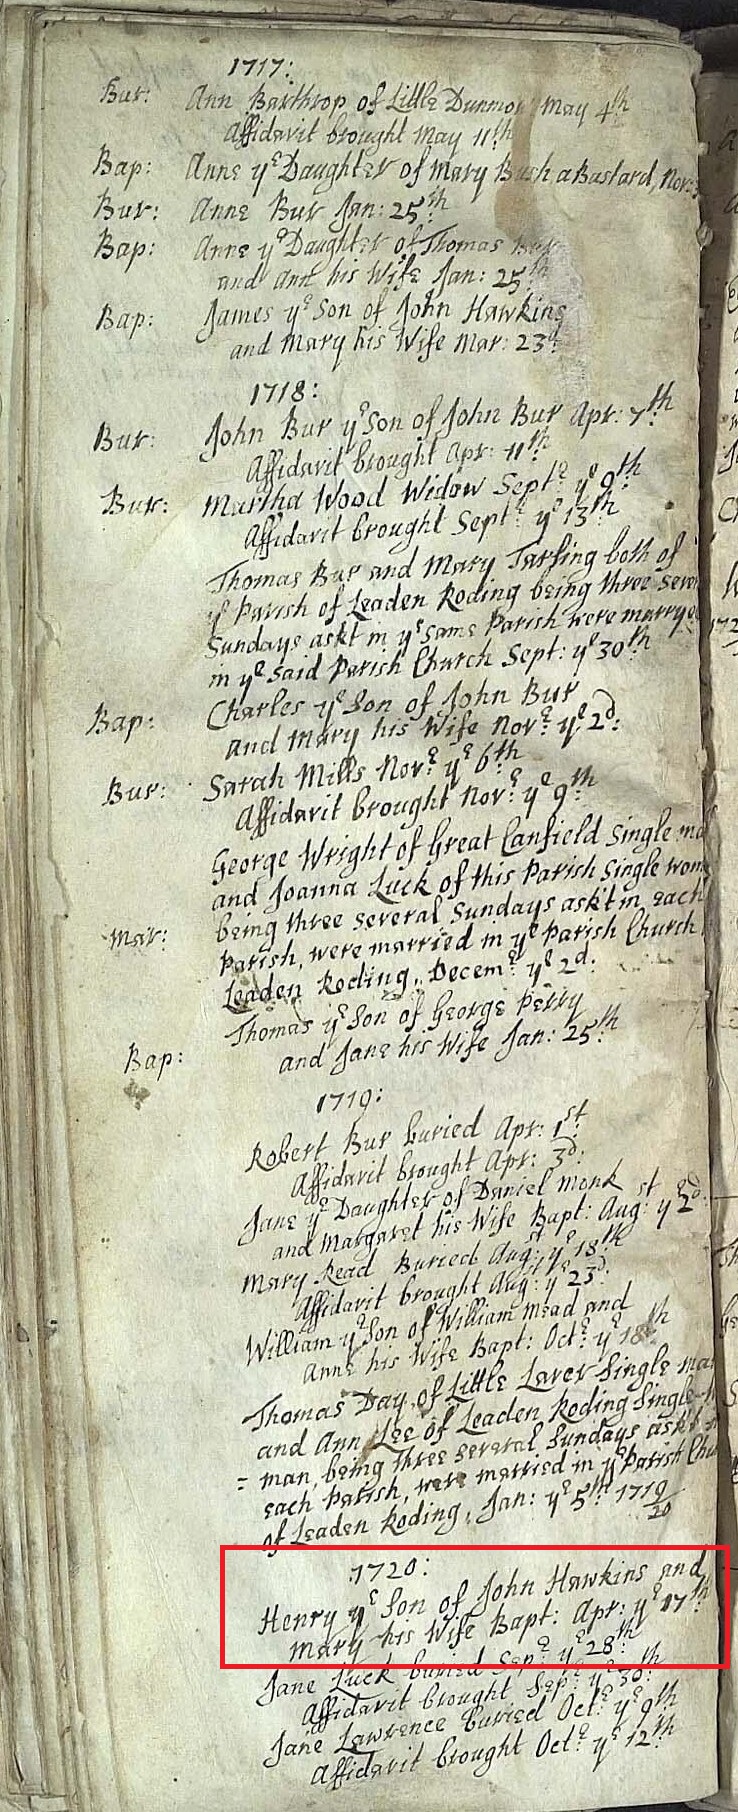 1717:
Bur: Ann Barthrop of Little Dunmow May 4th
Affidavit brought May 11th
Bap: Anne ye Daughter of Mary Bush a Bastard, Nov:
Bur: Anne Bur Jan: 25th
Bap: Anne ye Daughter of Thomas Bur
and Ann his Wife Jan: 25th
Bap: James ye Son of John Hawkins
and Mary his Wife Mar: 23d
1718:
Bur: John Bur ye Son of John Bur Apr: 7th
Affidavit brought Apr: 11th
Bur: Martha Wood Widow Septe ye 9th
Affidavit brought Septe ye 13th
Thomas Bur and Mary Tarling both of
ye Parish of Leaden Roding being three sever
Sundays askt in ye same Parish were marrye
in ye said Parish Church Sept: ye 30th
Bap: Charles ye Son of John Bur
and Mary his Wife Nove ye 2d:
Bur: Sarah Mills Nove ye 6th
Affidavit brought Nove ye 9th
George Wright of Great Canfield Single ma
and Joanna Luck of this Parish Single wom
Mar: being three several Sundays ask't in each
Parish, were married in ye Parish Church
Leaden Roding, Deceme ye 2d:
Thomas ye Son of George Perry
Bap: and Jane his Wife Jan: 25th
1719:
Robert Bur buried Apr: 1st
Affidavit brought Apr: 3d:
Jane ye Daughter of Daniel Monk
and Margaret his Wife Bapt: Aug: ye 2d
Mary Read Buried Augst: ye 18th
Affidavit brought Augst: ye 23d
William ye Son of William Mead and
Anne his Wife Bapt: Octe ye 18th
Thomas Day of Little Laver Single ma
and Ann Lee of Leaden Roding Single
= man, being three several Sundays askt
each Parish, were married in ye Parish Chu
of Leaden Roding, Jan: ye 5th 1719/20
1720:
Henry ye Son of John Hawkins and
Mary his Wife Bapt: Apr: ye 17th
Jane Luck buried Sepe ye 28th
Affidavit brought Sepe ye 30:
Jane Lawrence buried Octe ye 9th
Affidavit brought Octe ye 12th